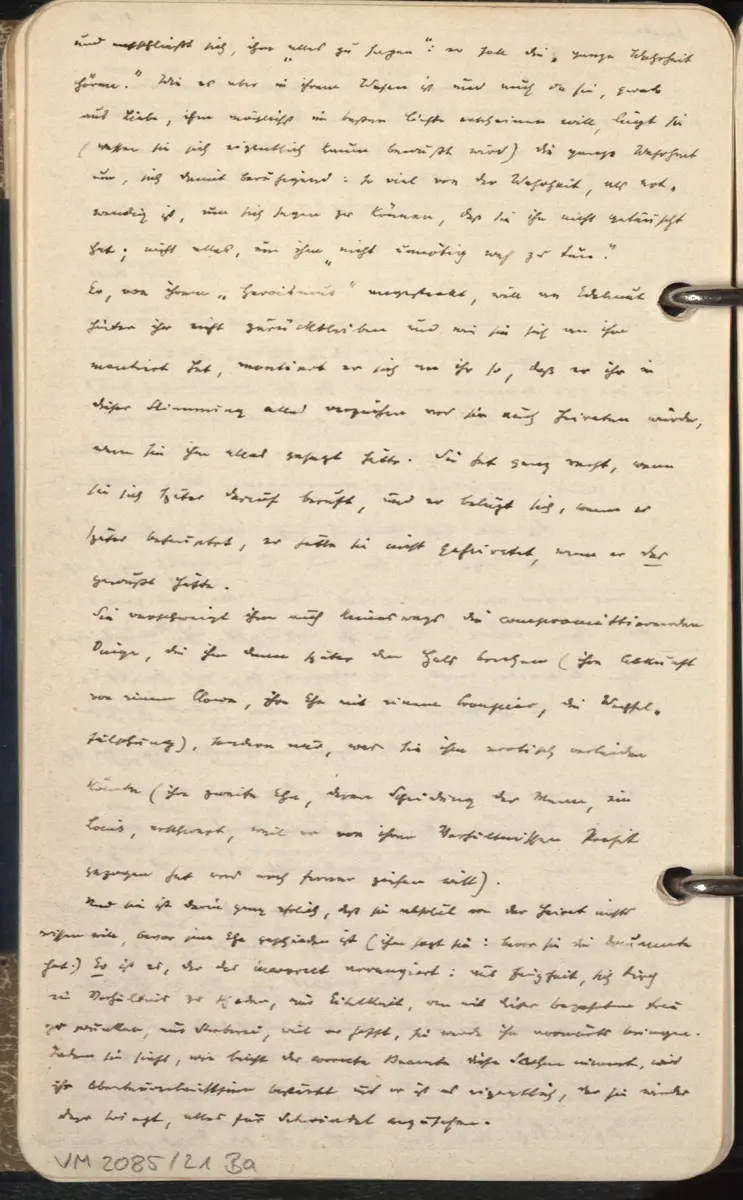 und entschließt sich, ihm „alles zu sagen": er soll die „ganze Wahrheit
hören." Wie es aber in ihrem Wesen ist und auch da sie, gerade
aus Liebe, ihm möglichst im besten Lichte erscheinen will, lügt sie
(dessen sie sich eigentlich kaum bewußt wird) die ganze Wahrheit
um, sich damit beruhigend: so viel von der Wahrheit, als not-
wendig ist, um sich sagen zu können, daß sie ihn nicht getäuscht
hat; nicht alles, um ihm „nicht unnötig weh zu tun."
Er, von ihrem „Heroismus" angesteckt, will an Edelmut
hinter ihr nicht zurückbleiben und wie sie sich an ihm
montiert hat, montiert er sich an ihr so, daß er ihr in
dieser Stimmung alles verzeihen und sie auch heiraten würde,
wenn sie ihm alles gesagt hätte. Sie hat ganz recht, wenn
sie sich später darauf beruft, und er belügt sich, wenn er
später behauptet, er hätte sie nicht geheiratet, wenn er das
gewußt hätte.
Sie verschweigt ihm auch keineswegs die compromittierenden
Dinge, die ihm dann später den Hals brechen (ihre Abkunft
von einem Clown, ihre Ehe mit einem Croupier, die Wechsel-
fälschung), sondern nur, was sie ihm erotisch verleiden
könnte (ihre zweite Ehe, deren Scheidung der Mann, ein
Louis, erschwert, weil er von ihren Verhältnissen Profit
gezogen hat und noch ferner ziehen will).
Und sie ist darin ganz ehrlich, daß sie absolut von der Heirat nichts
wissen will, bevor jene Ehe geschieden ist (ihm sagt sie: bevor sie die Dokumente
hat.) Er ist es, der das incorrect arrangiert: aus Feigheit, sich durch
ein Verhältnis zu schaden, aus Eitelkeit, um mit dieser Frau
zu prunken, aus Streberei, weil er hofft, sie werde ihn vorwärts bringen.
Indem sie sieht, wie leicht der correcte Beamte diese Sachen nimmt, wird
ihr bestärkt und er ist es eigentlich, der sie wieder
dazu bringt, alles für Schwindel anzusehen.
VM 2085/21 Ba